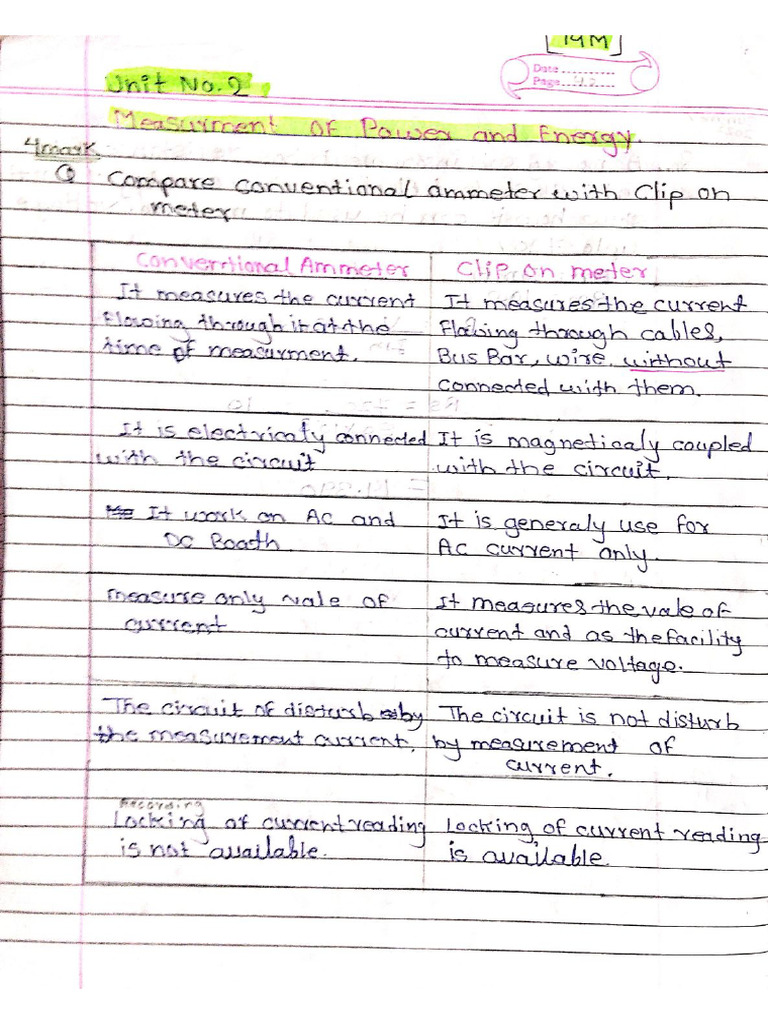 [14M]
Date
Page
Unit No. 2
Measurment of Power and Energy.
4mark
Q Compare conventional ammeter with Clip on
meter
Conventional Ammeter
It measures the current
flowing through it at the
time of measurment.
Clip on meter
It measures the current
Flowing through cables,
Bus Bar, wire without
connected with them.
It is electricaly connected
with the circuit
It is magneticaly coupled
with the circuit.
It work on AC and
DC Booth
It is generaly use for
AC current only.
measure only vale of
current
It measures the vale of
current and as the facility
to measure voltage.
The circuit of disturb by
the measurement current.
The circuit is not disturb
by measurement of
current.
Recording
Locking of current reading
is not available.
Locking of current reading
is available.